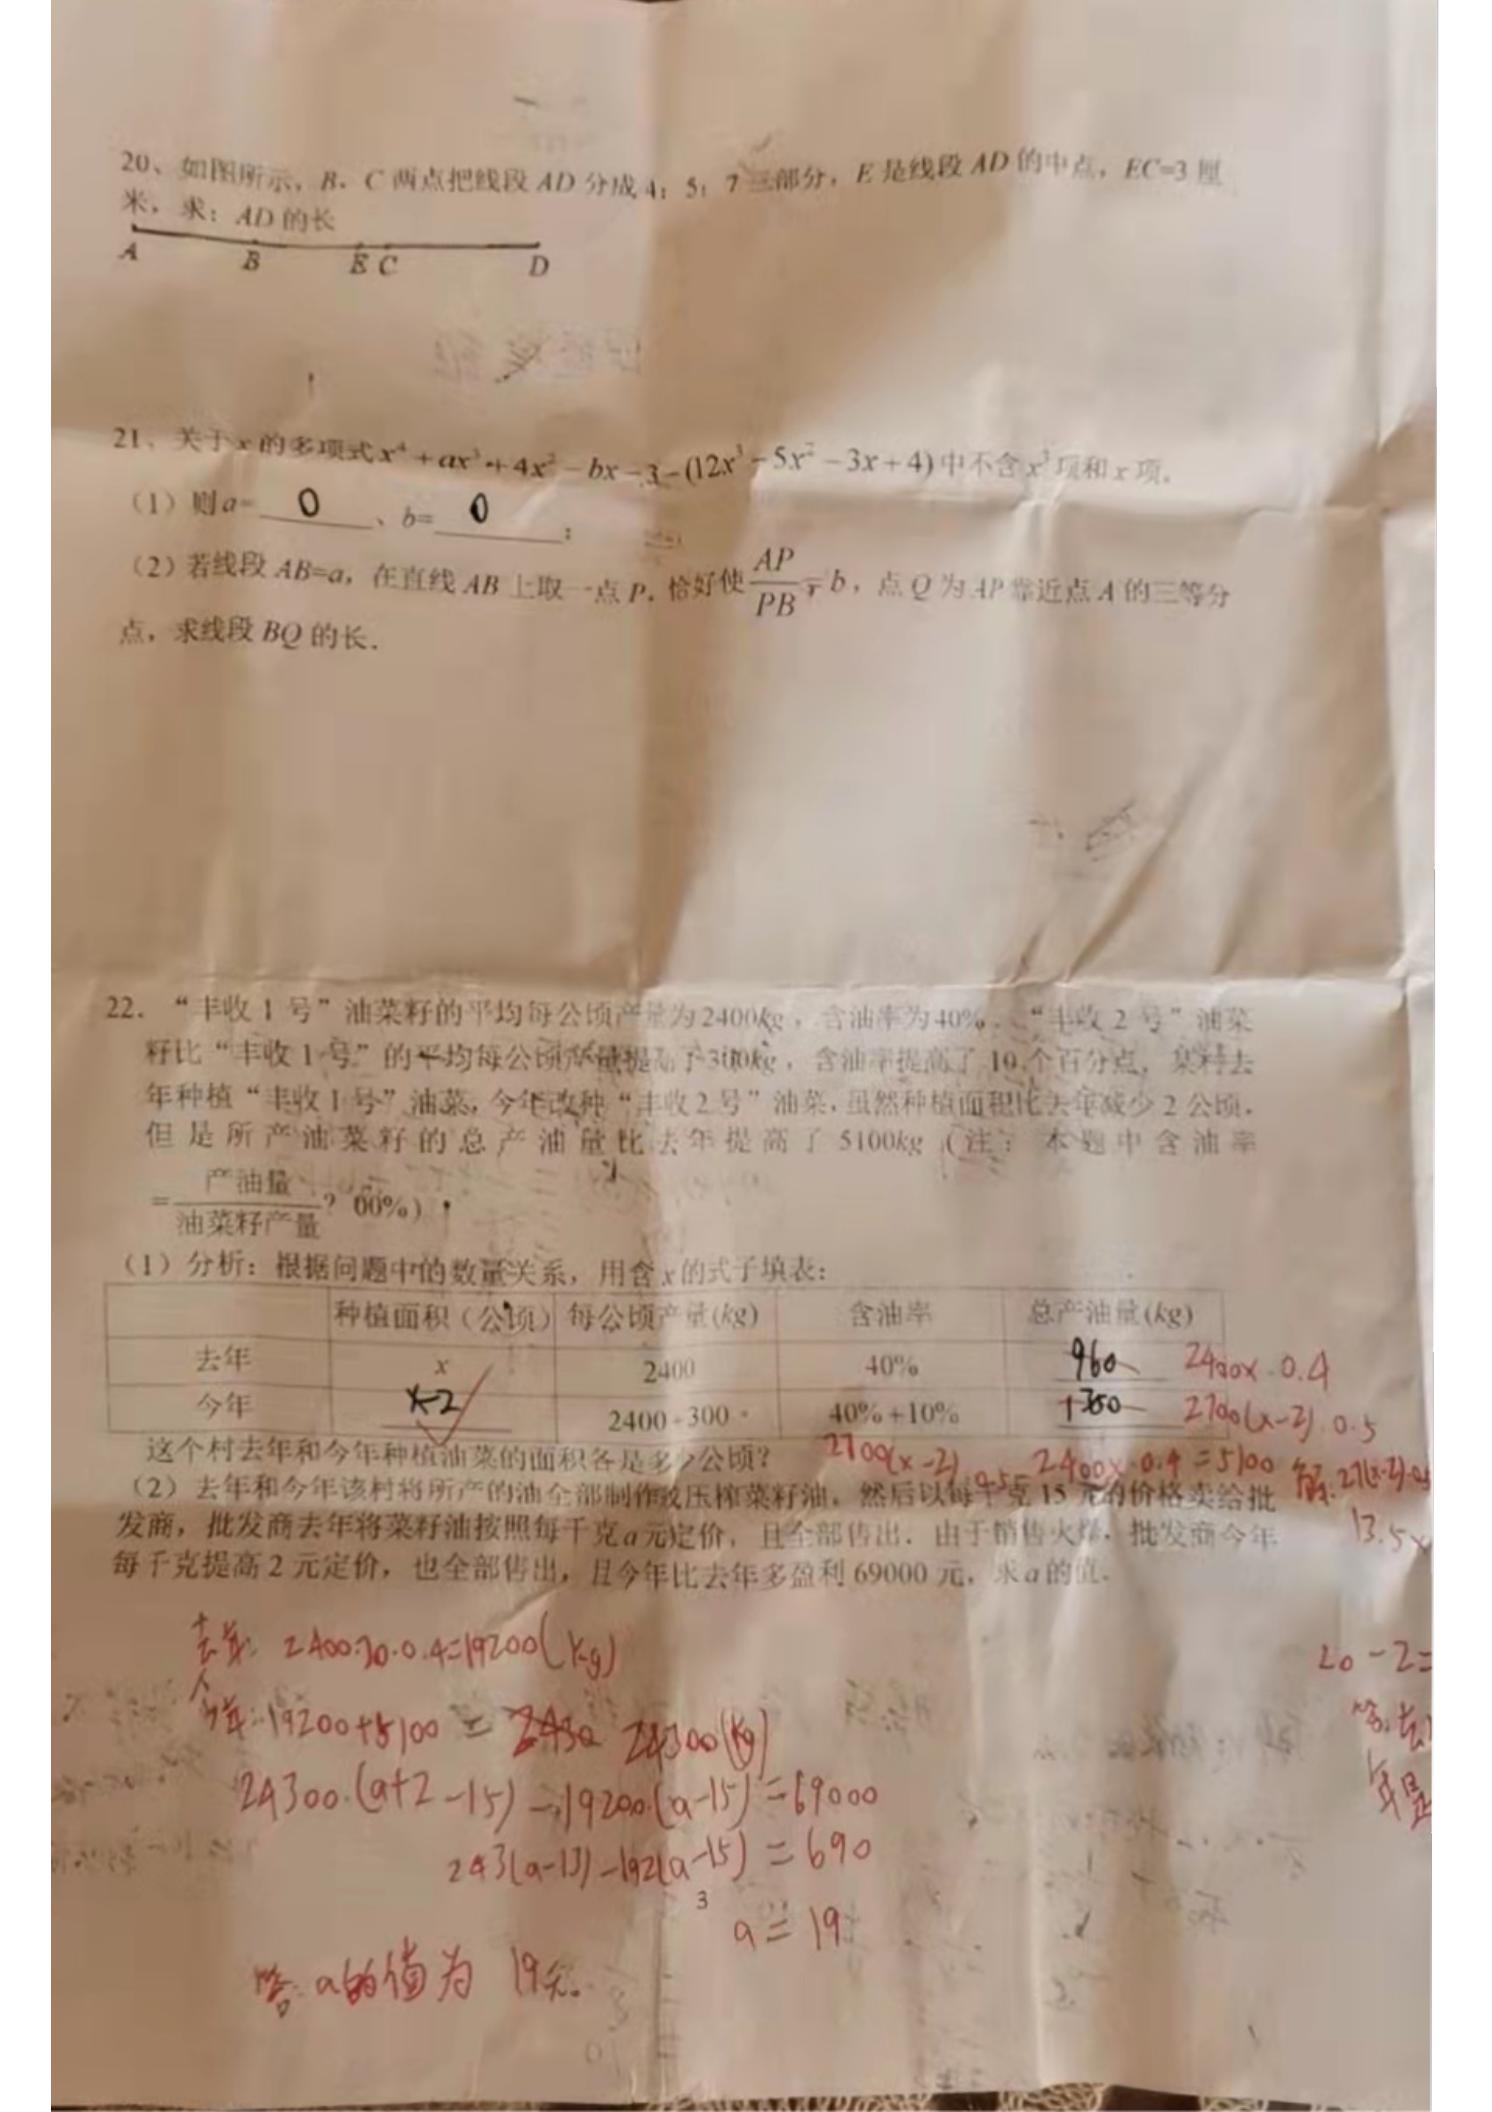 20、如图所示，B、C两点把线段AD分成4：5：7三部分，E是线段AD的中点，EC=3厘
米，求：AD的长
A B E C D
21、关于x的多项式x⁴+ax³+4x²-bx-3-(12x³-5x²-3x+4)中不含x³项和x项.
（1）则a= 0 、b= 0 ；
（2）若线段AB=a，在直线AB上取一点P，恰好使AP/PB=b，点Q为AP靠近点A的三等分
点，求线段BQ的长.
22. “丰收1号”油菜籽的平均每公顷产量为2400kg，含油率为40%. “丰收2号”油菜
籽比“丰收1号”的平均每公顷产量提高了300kg，含油率提高了10个百分点，某村去
年种植“丰收1号”油菜，今年改种“丰收2号”油菜，虽然种植面积比去年减少2公顷，
但是所产油菜籽的总产油量比去年提高了5100kg（注：本题中含油率
=产油量/油菜籽产量? 00%）.
（1）分析：根据问题中的数量关系，用含x的式子填表：
种植面积（公顷） 每公顷产量(kg) 含油率 总产油量(kg)
去年 x 2400 40% 960 2400x·0.4
今年 x-2 2400+300 40%+10% 1350 2700(x-2)·0.5
这个村去年和今年种植油菜的面积各是多少公顷？ 2700(x-2)·0.5-2400x·0.4=5100 解:27(x-2)·0.5
（2）去年和今年该村将所产的油全部制作成压榨菜籽油，然后以每千克15元的价格卖给批
发商，批发商去年将菜籽油按照每千克a元定价，且全部售出. 由于销售火爆，批发商今年 13.5x
每千克提高2元定价，也全部售出，且今年比去年多盈利69000元，求a的值.
去年: 2400·20·0.4=19200(kg)
20-2=
今年:19200+5100= 24300(kg)
答:去
24300·(a+2-15)-19200·(a-15)=69000
年是
243(a-13)-192(a-15)=690
3
a=19
答:a的值为19元.